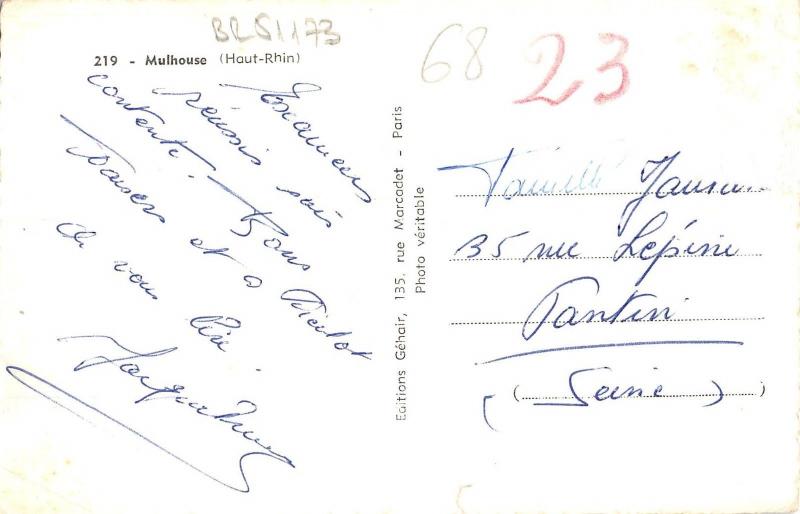 BRS1173
219 - Mulhouse (Haut-Rhin)
68
23
Examens
réussis suis
contente. Bons
baisers et à bientot
de vous lire.
Editions Géhair, 135, rue Marcadet - Paris
Photo véritable
Famille
35 rue Lépine
Pantin
(Seine)